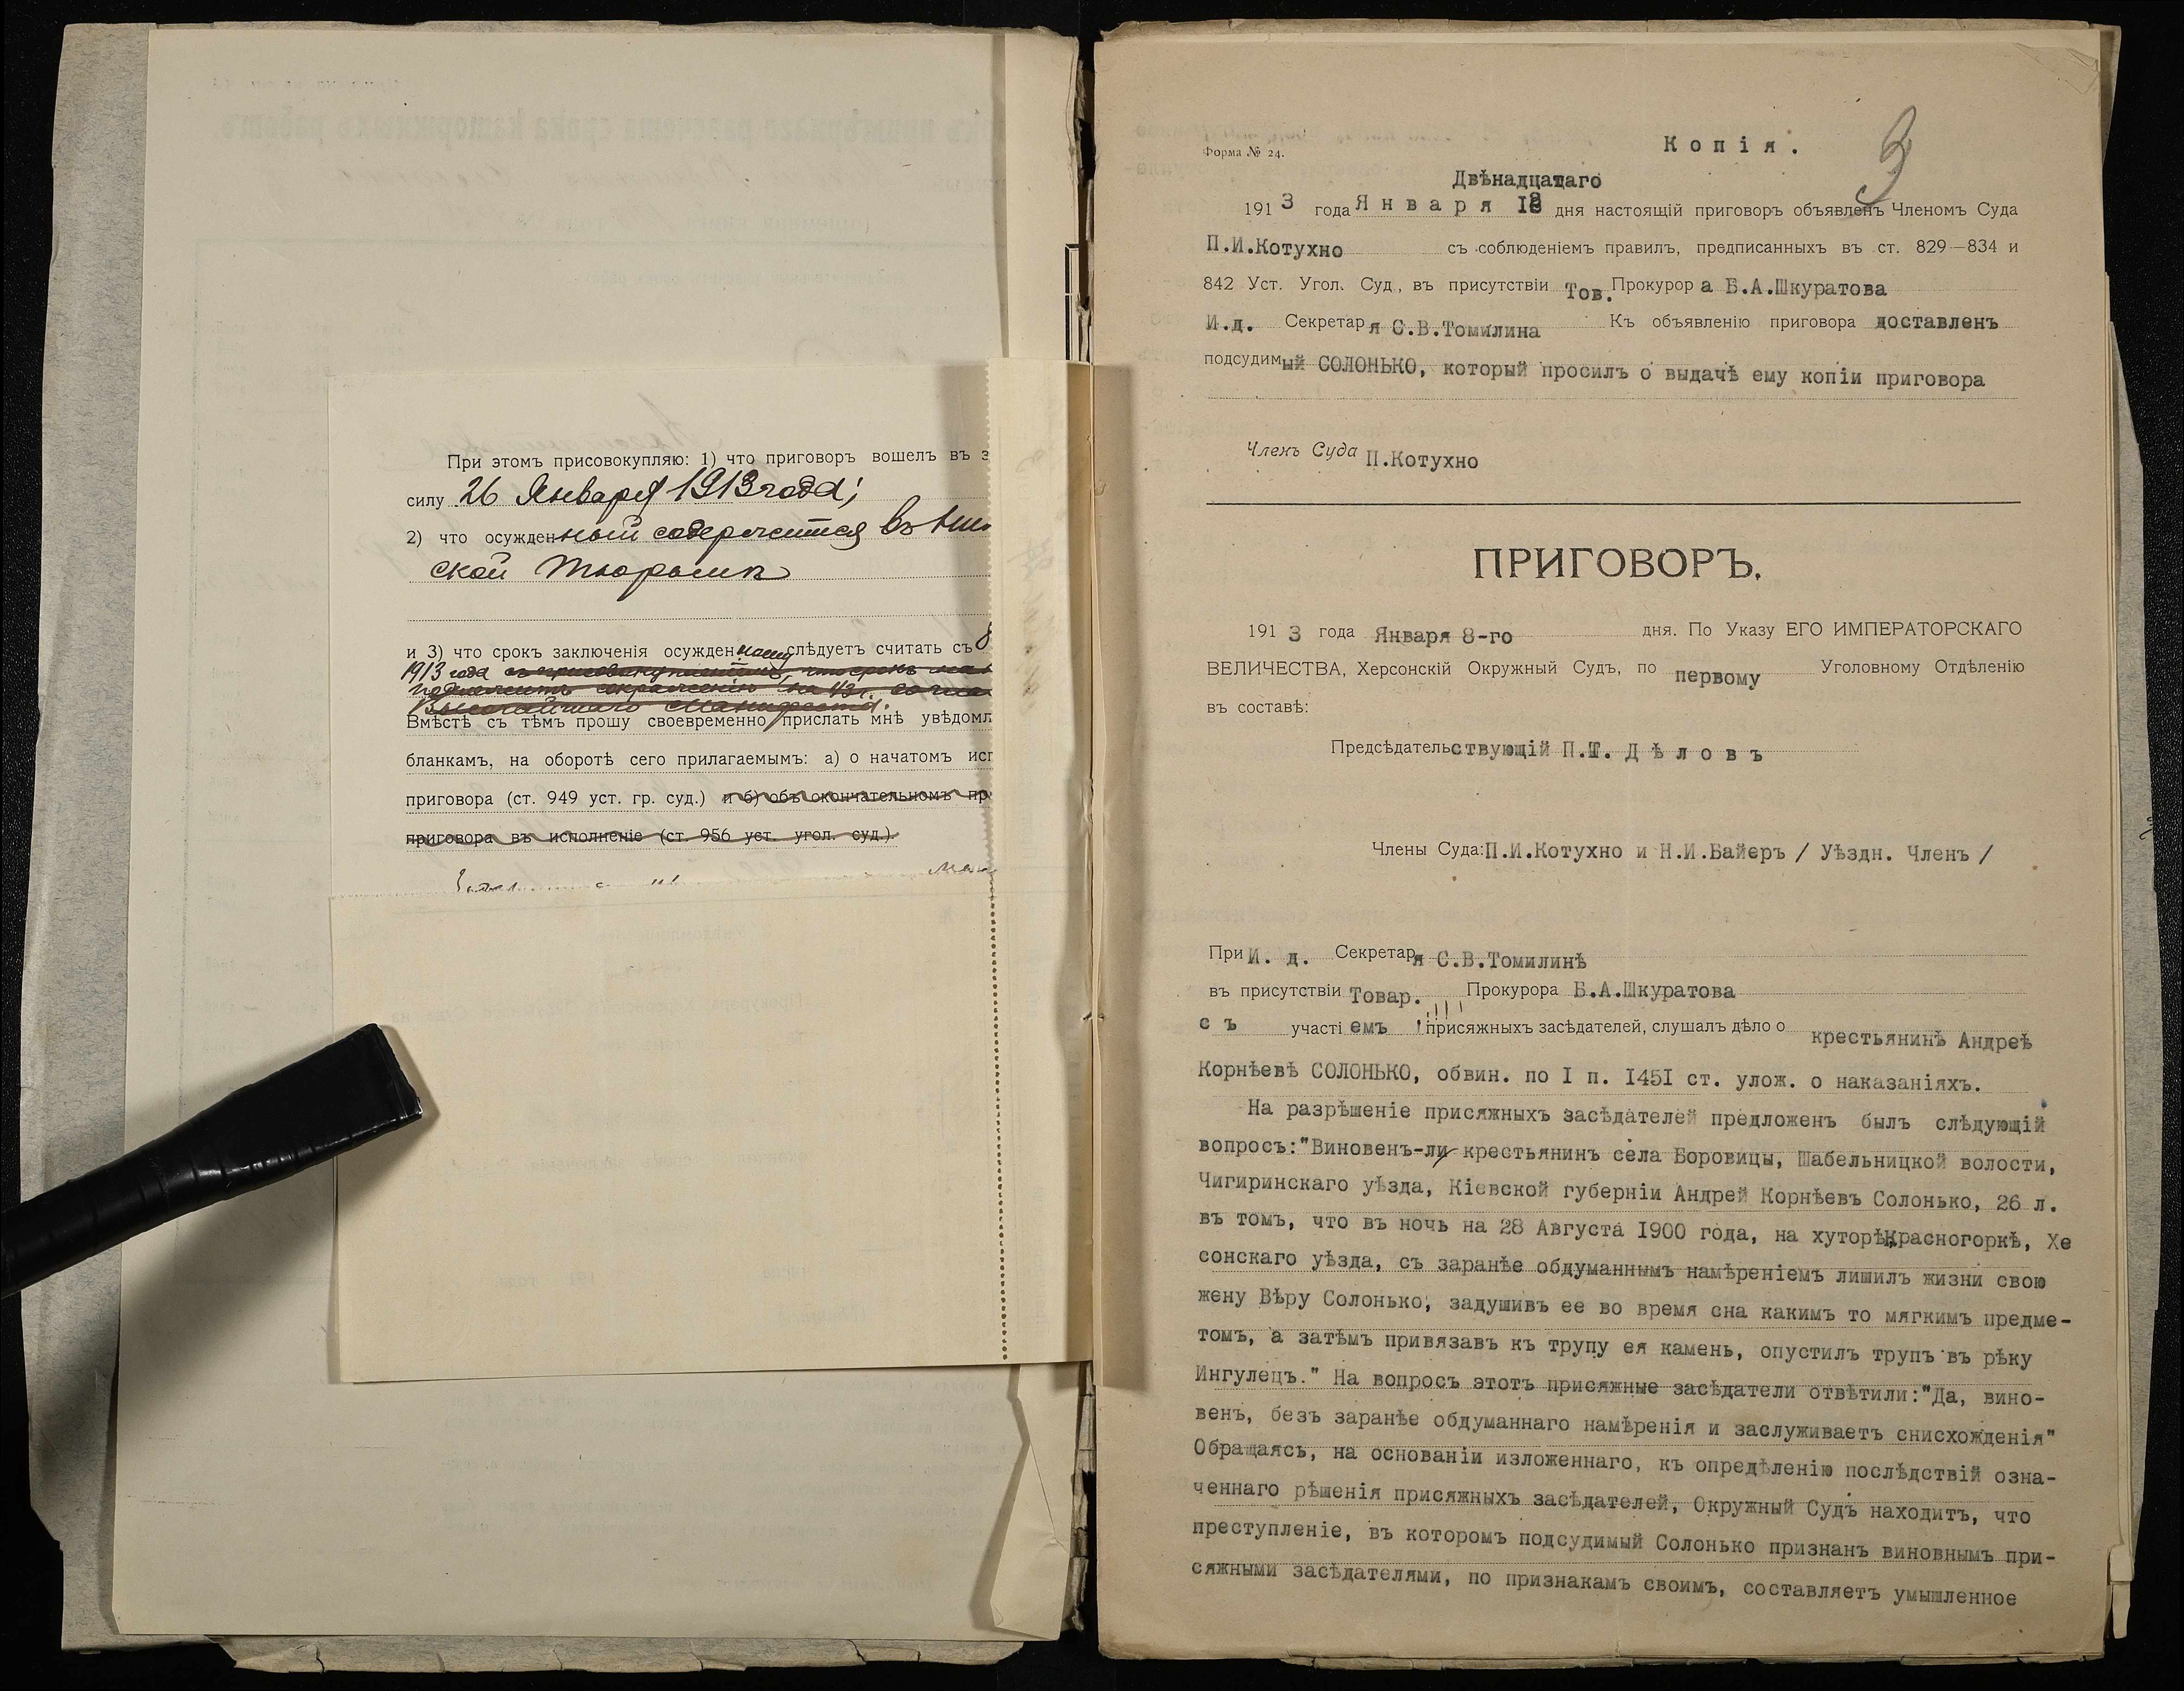 При этомъ присовокупляю: 1) что приговоръ вошелъ въ з
силу 26 Января 1913 года;
2) что осужденный содержится въ
ской тюрьмѣ
и 3) что срокъ заключенія осужденному слѣдуетъ считать съ 8
1913 года съ присовокупленіемъ, что срокъ
подлежитъ сокращенію на 1/3
Высочайшаго Манифеста.
Вмѣстѣ съ тѣмъ прошу своевременно прислать мнѣ увѣдомл
бланкамъ, на оборотѣ сего прилагаемымъ: а) о начатомъ исп
приговора (ст. 949 уст. гр. суд.) и б) объ окончательномъ пр
приговора въ исполненіе (ст. 956 уст. угол. суд.).
Копія.
3
Форма № 24.
Двѣнадцатаго
1913 года Января 12 дня настоящій приговоръ объявленъ Членомъ Суда
П.И.Котухно съ соблюденіемъ правилъ, предписанныхъ въ ст. 829—834 и
842 Уст. Угол. Суд., въ присутствіи Тов. Прокурора Б.А.Шкуратова
И.д. Секретаря С.В.Томилина Къ объявленію приговора доставленъ
подсудимый СОЛОНЬКО, который просилъ о выдачѣ ему копіи приговора
Членъ Суда П.Котухно
ПРИГОВОРЪ.
1913 года Января 8-го дня. По Указу ЕГО ИМПЕРАТОРСКАГО
ВЕЛИЧЕСТВА, Херсонскій Окружный Судъ, по первому Уголовному Отдѣленію
въ составѣ:
Предсѣдательствующій П.Т. Дѣловъ
Члены Суда: П.И.Котухно и Н.И.Байеръ / Уѣздн. Членъ /
При И. д. Секретаря С.В.Томилинѣ
въ присутствіи Товар. Прокурора Б.А.Шкуратова
съ участіемъ присяжныхъ засѣдателей, слушалъ дѣло о крестьянинѣ Андреѣ
Корнѣевѣ СОЛОНЬКО, обвин. по I п. I45I ст. улож. о наказаніяхъ.
На разрѣшеніе присяжныхъ засѣдателей предложенъ былъ слѣдующій
вопросъ:"Виновенъ-ли крестьянинъ села Боровицы, Шабельницкой волости,
Чигиринскаго уѣзда, Кіевской губерніи Андрей Корнѣевъ Солонько, 26 л.
въ томъ, что въ ночь на 28 Августа I900 года, на хуторѣ Красногоркѣ, Хе
сонскаго уѣзда, съ заранѣе обдуманнымъ намѣреніемъ лишилъ жизни свою
жену Вѣру Солонько, задушивъ ее во время сна какимъ то мягкимъ предме-
томъ, а затѣмъ привязавъ къ трупу ея камень, опустилъ трупъ въ рѣку
Ингулецъ." На вопросъ этотъ присяжные засѣдатели отвѣтили:"Да, вино-
венъ, безъ заранѣе обдуманнаго намѣренія и заслуживаетъ снисхожденія"
Обращаясь, на основаніи изложеннаго, къ опредѣленію послѣдствій озна-
ченнаго рѣшенія присяжныхъ засѣдателей, Окружный Судъ находитъ, что
преступленіе, въ которомъ подсудимый Солонько признанъ виновнымъ при-
сяжными засѣдателями, по признакамъ своимъ, составляетъ умышленное